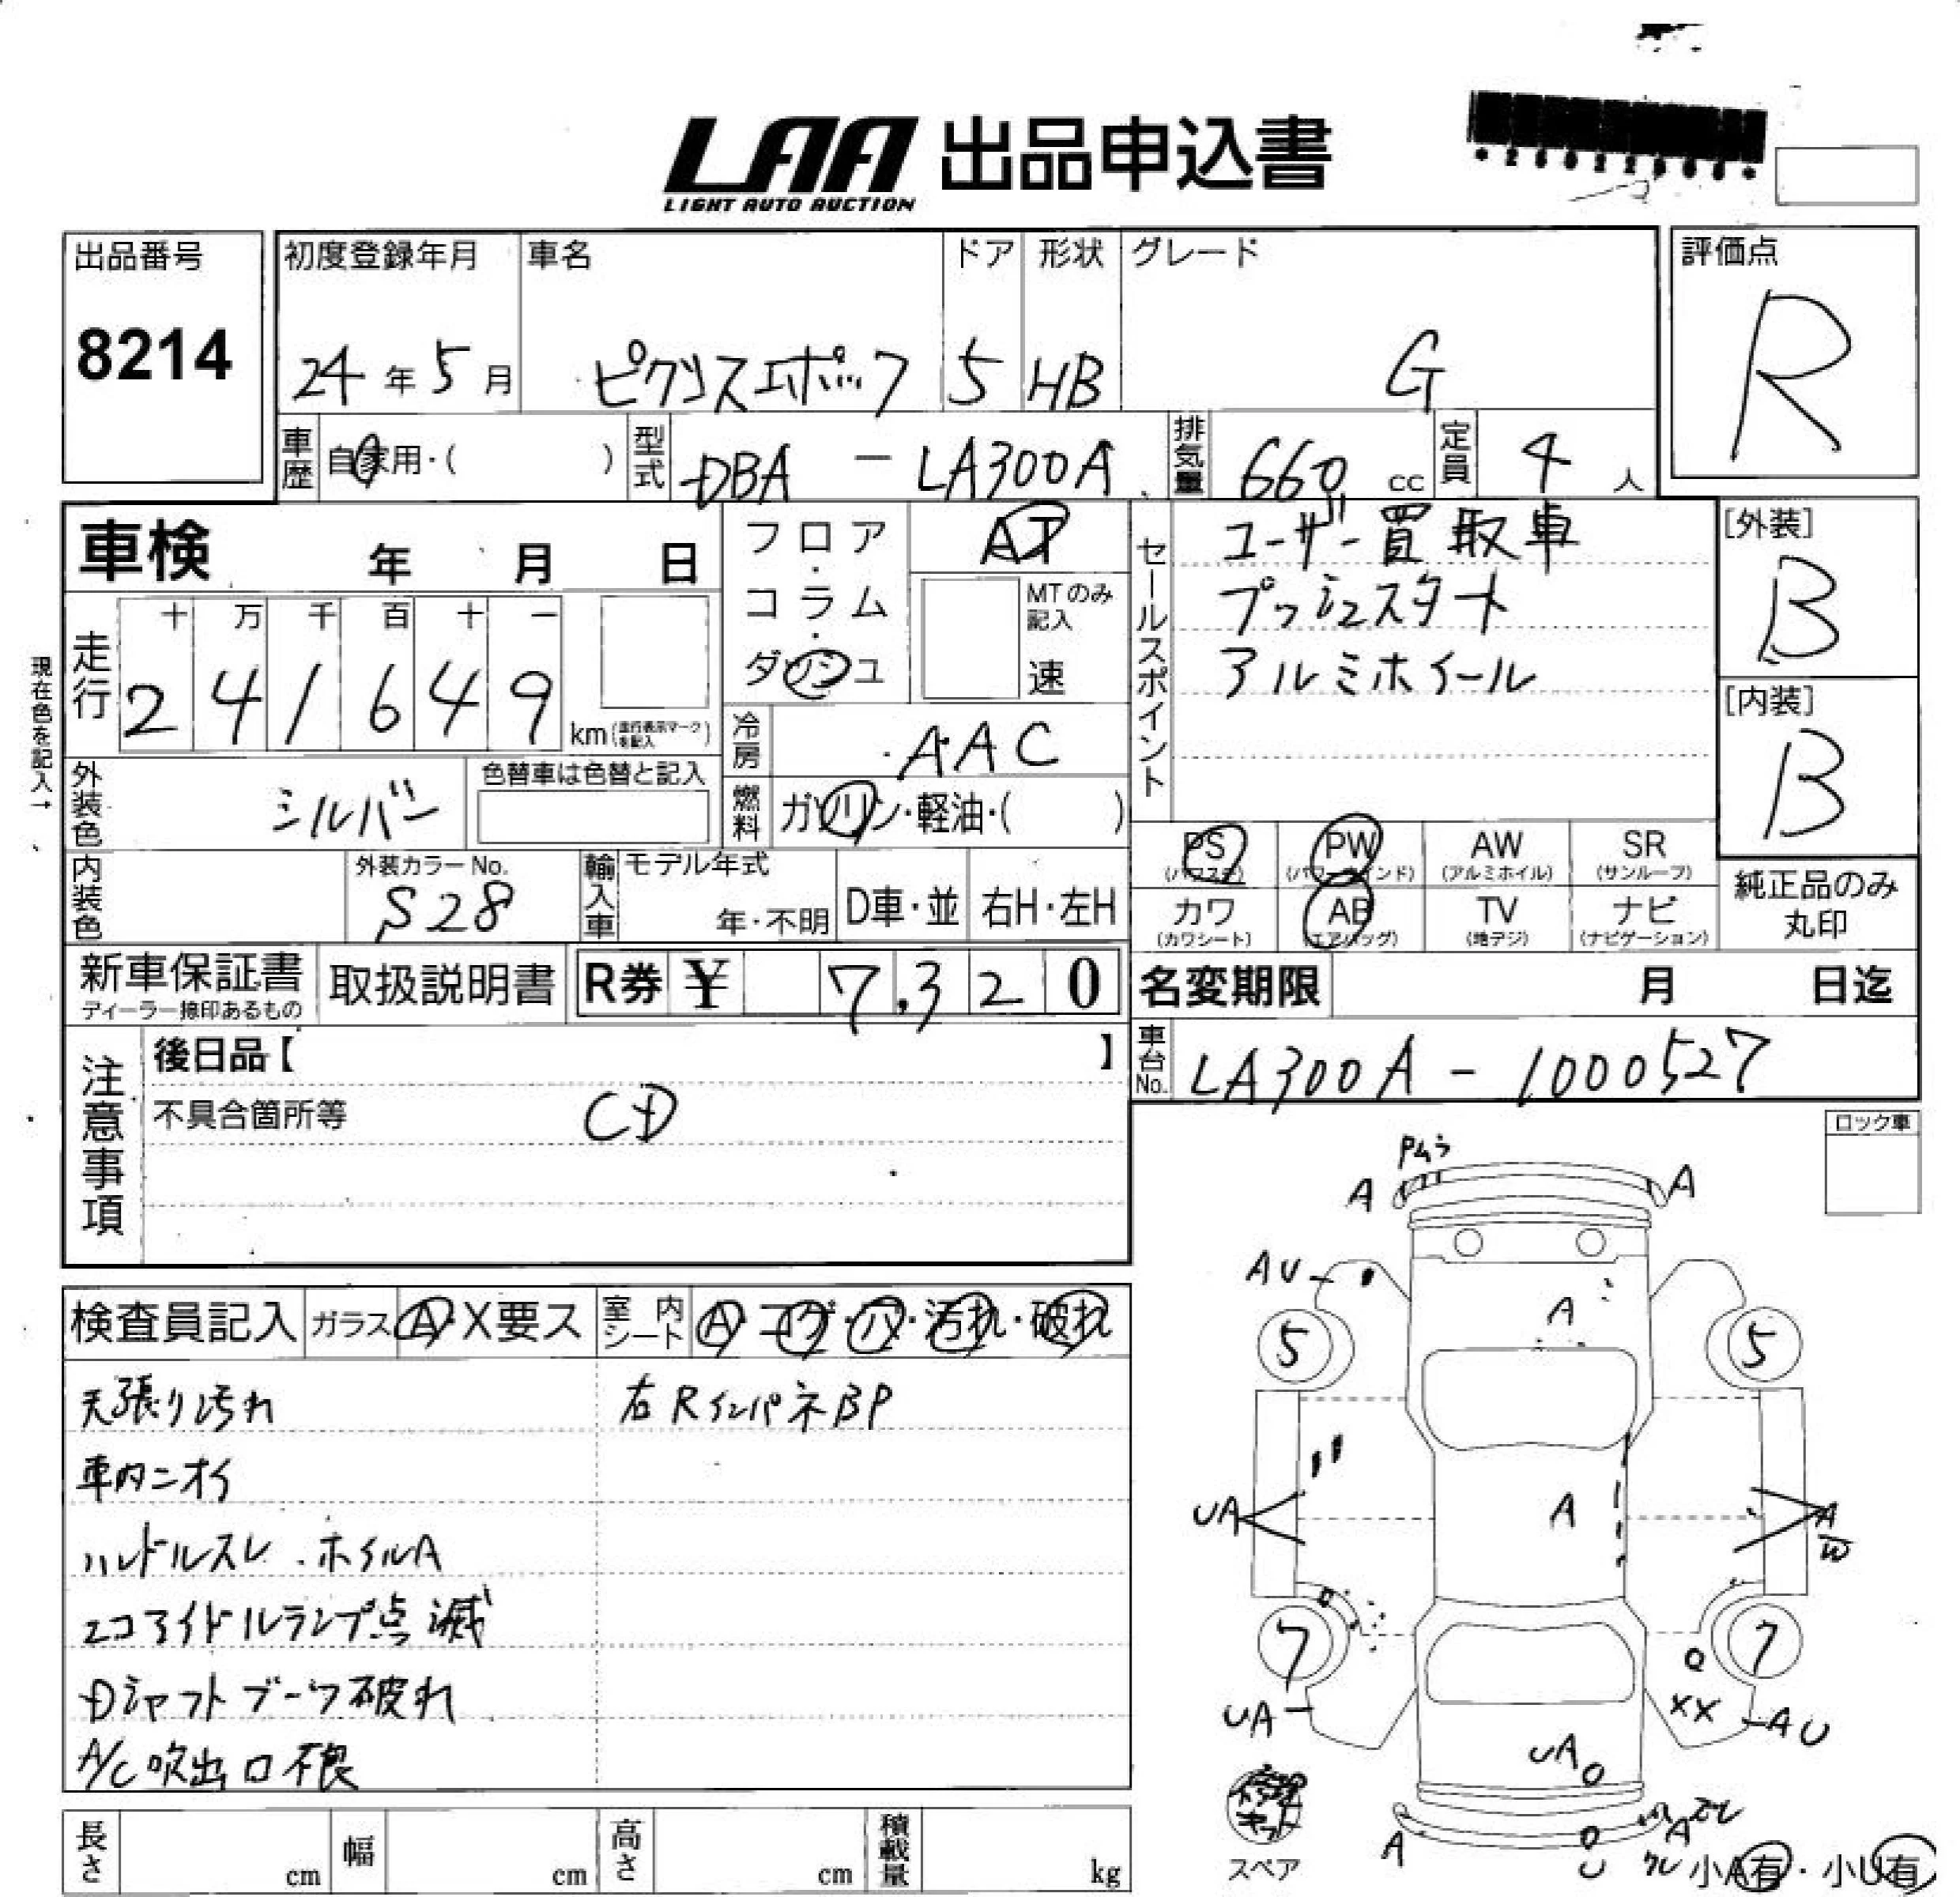 LAA 出品申込書
LIGHT AUTO AUCTION
出品番号
8214
初度登録年月
24年5月
車名
ピクシスエポック
ドア
5
形状
HB
グレード
G
評価点
R
車歴
自家用・( )
型式
DBA - LA300A
排気量
660 cc
定員
4 人
車検 年 月 日
フロア・コラム・ダッシュ
AT
MTのみ記入
速
セールスポイント
ユーザー買取車
プッシュスタート
アルミホイール
[外装]
B
[内装]
B
現在色を記入→
走行
十 万 千 百 十 一
2 4 1 6 4 9
km(走行表示マークを記入)
冷房
AAC
外装色
シルバー
色替車は色替と記入
燃料
ガソリン・軽油・( )
PS (パワステ)
PW (パワーウインド)
AW (アルミホイル)
SR (サンルーフ)
カワ (カワシート)
AB (エアバッグ)
TV (地デジ)
ナビ (ナビゲーション)
純正品のみ丸印
内装色
外装カラーNo.
S28
輸入車
モデル年式
年・不明
D車・並
右H・左H
新車保証書
ディーラー捺印あるもの
取扱説明書
R券 ¥ 7,320
名変期限 月 日迄
車台No.
LA300A - 1000527
注意事項
後日品【 】
不具合箇所等
CD
ロック車
検査員記入
ガラス A・X要ス
室内シート A・コゲ・穴・汚れ・破れ
天張り汚れ
右RインパネBP
車内ニオイ
ハンドルスレ . ホイルA
エコアイドルランプ点滅
Dシャフトブーツ破れ
A/C吹出口不良
A
A
AU
A
5
5
UA
A
A
W
7
7
UA
XX
AU
UA
修理キット
スペア
A
U
A
ズレ
ワレ
小A有・小U有
長さ cm
幅 cm
高さ cm
積載量 kg